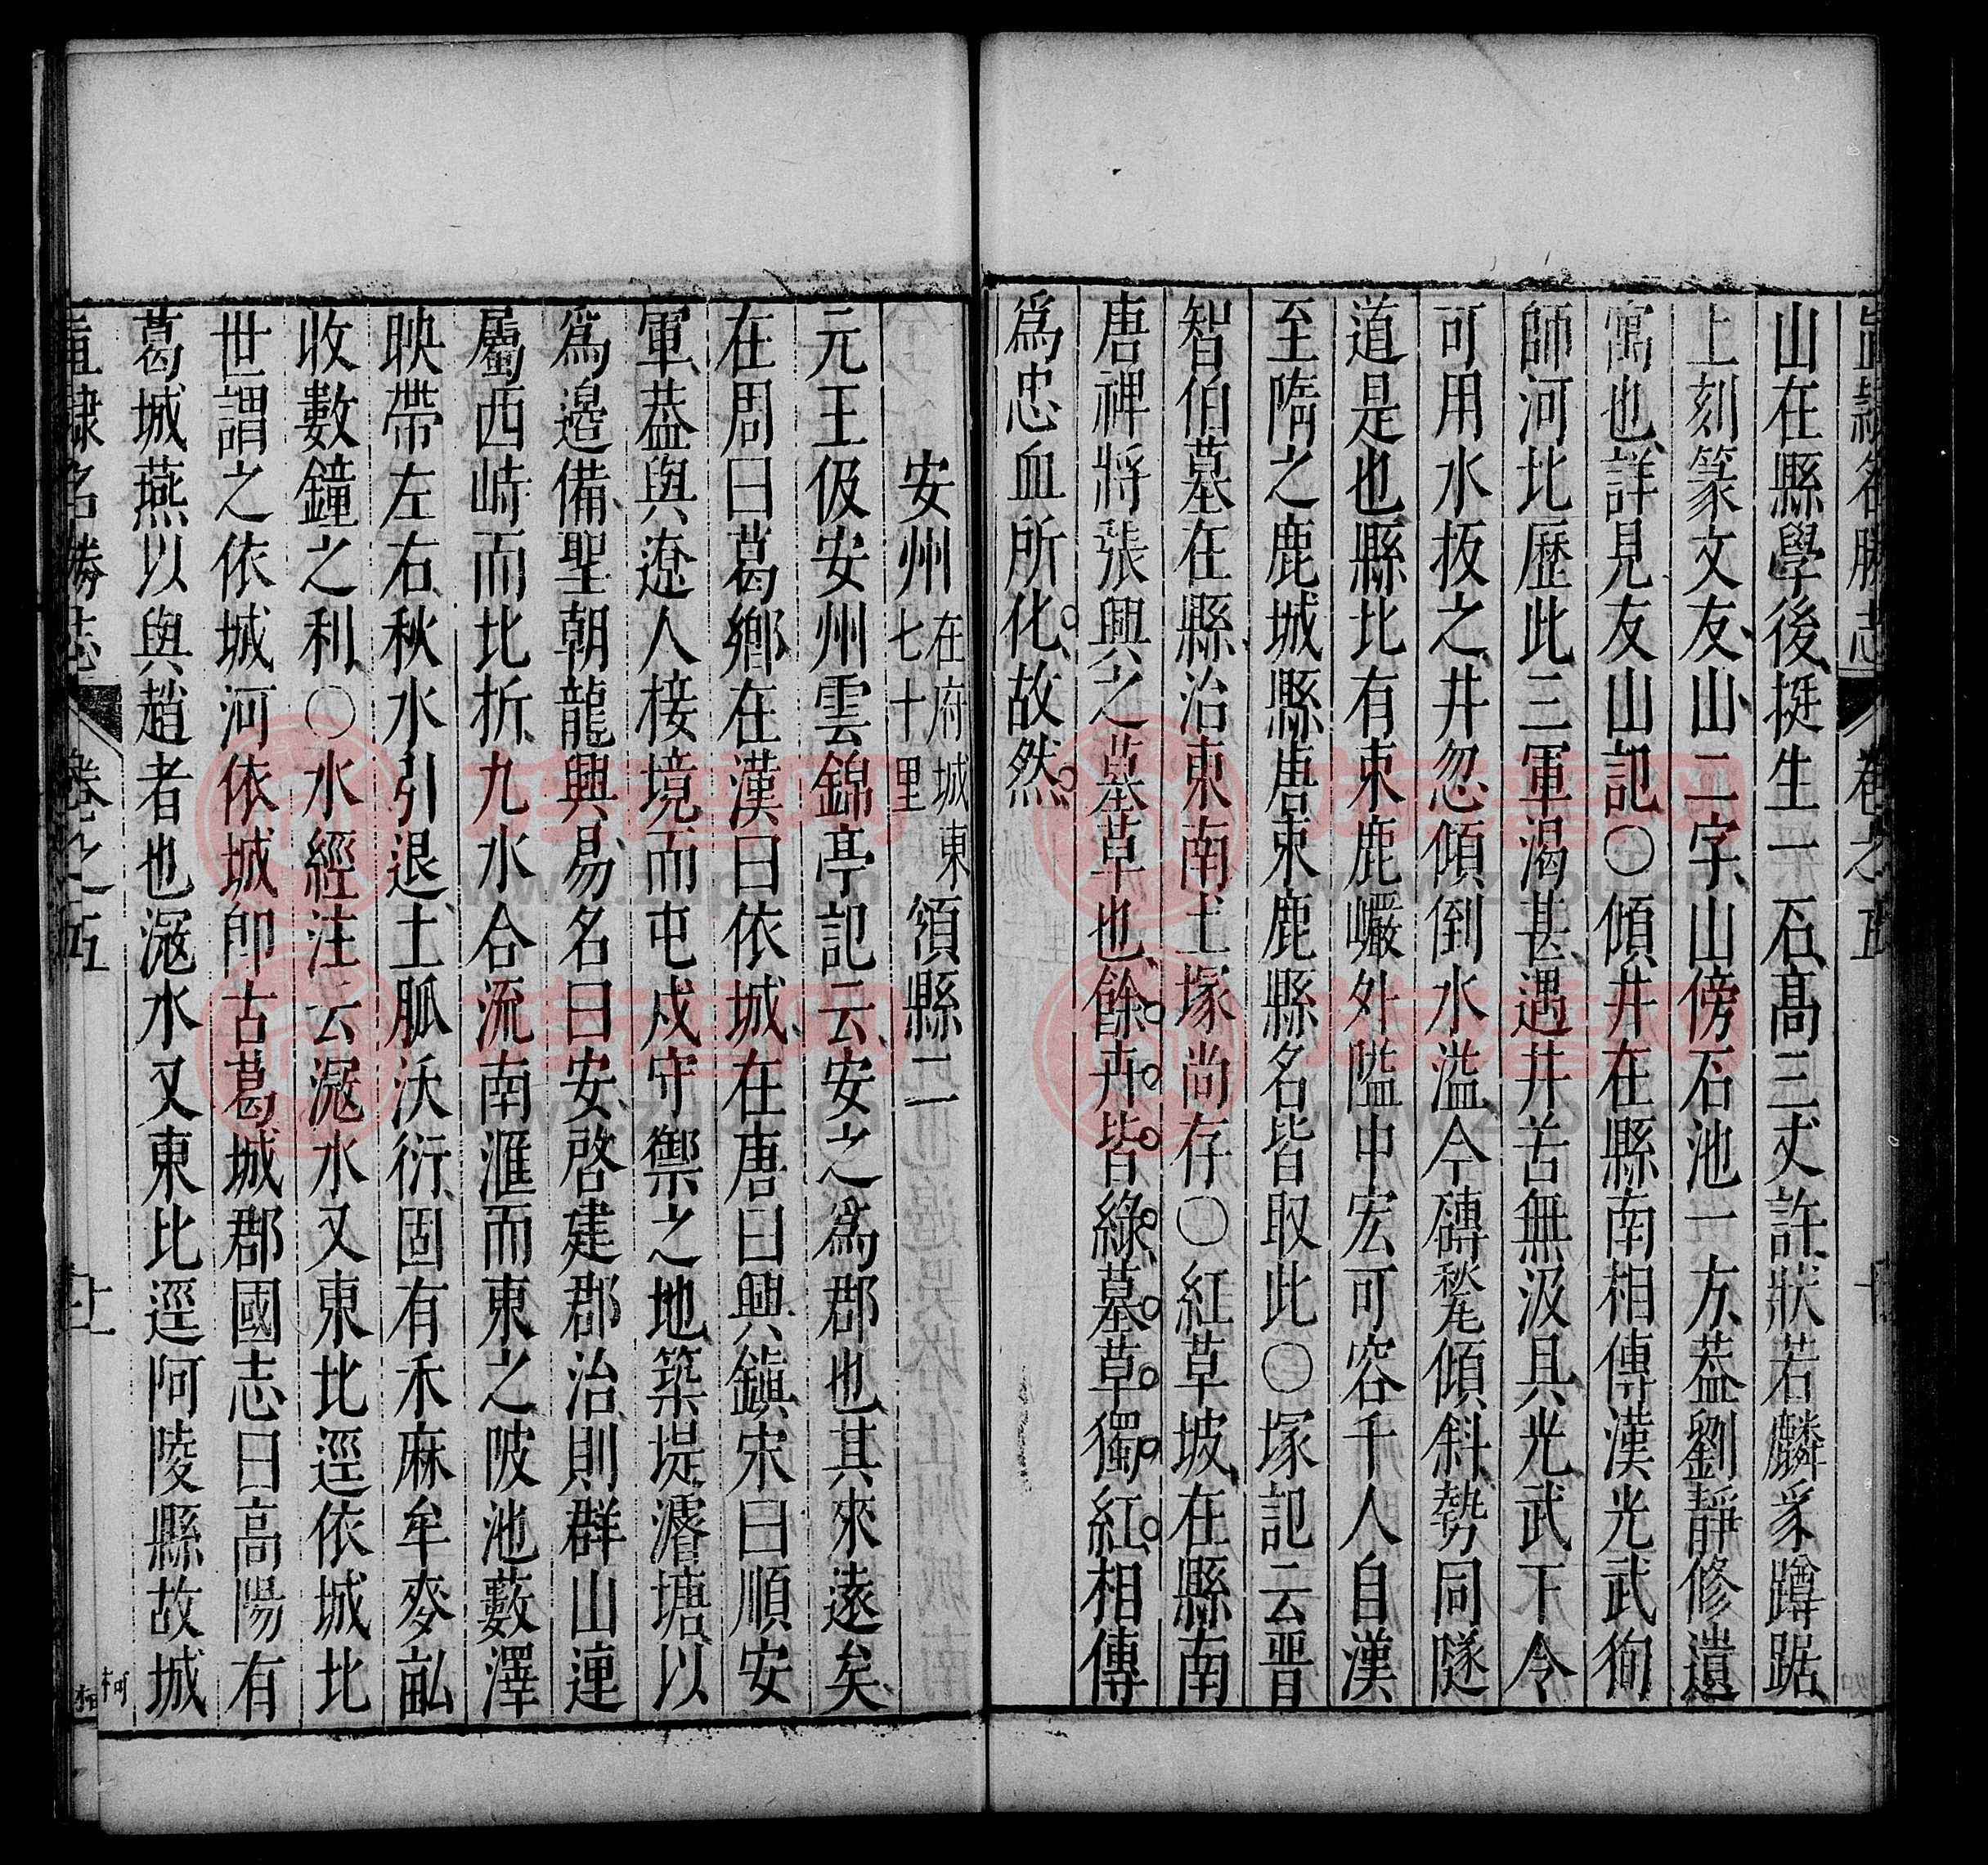 直隸名勝志 卷之五
山在縣學後挺生一石高三丈許狀若麟豸蹲踞
上刻篆文友山二字山傍石池一方葢劉靜修遺
寓也詳見友山記〇傾井在縣南相傳漢光武狥
師河北歷此三軍渴甚遇井苦無汲具光武下令
可用水扳之井忽傾倒水溢今磚甃傾斜勢同隧
道是也縣北有束鹿巗外隘中宏可容千人自漢
至隋之鹿城縣唐束鹿縣名皆取此〇塚記云晋
智伯墓在縣治東南土塚尚存〇紅草坡在縣南
唐裨將張興之墓草也餘卉皆綠墓草獨紅相傳
爲忠血所化故然
安州 在府城東七十里 領縣二
元王伋安州雲錦亭記云安之爲郡也其來遠矣
在周曰葛鄉在漢曰依城在唐曰興鎭宋曰順安
軍葢與遼人接境而屯戍守禦之地築堤濬塘以
爲邉備聖朝龍興易名曰安啓建郡治則群山連
屬西峙而北折九水合流南滙而東之陂池藪澤
映帶左右秋水引退土脈沃衍固有禾麻牟麥畆
收數鐘之利〇水經注云㴲水又東北逕依城北
世謂之依城河依城卽古葛城郡國志曰高陽有
葛城燕以與趙者也㴲水又東北逕阿陵縣故城
直隸名勝志 卷之五 廿一